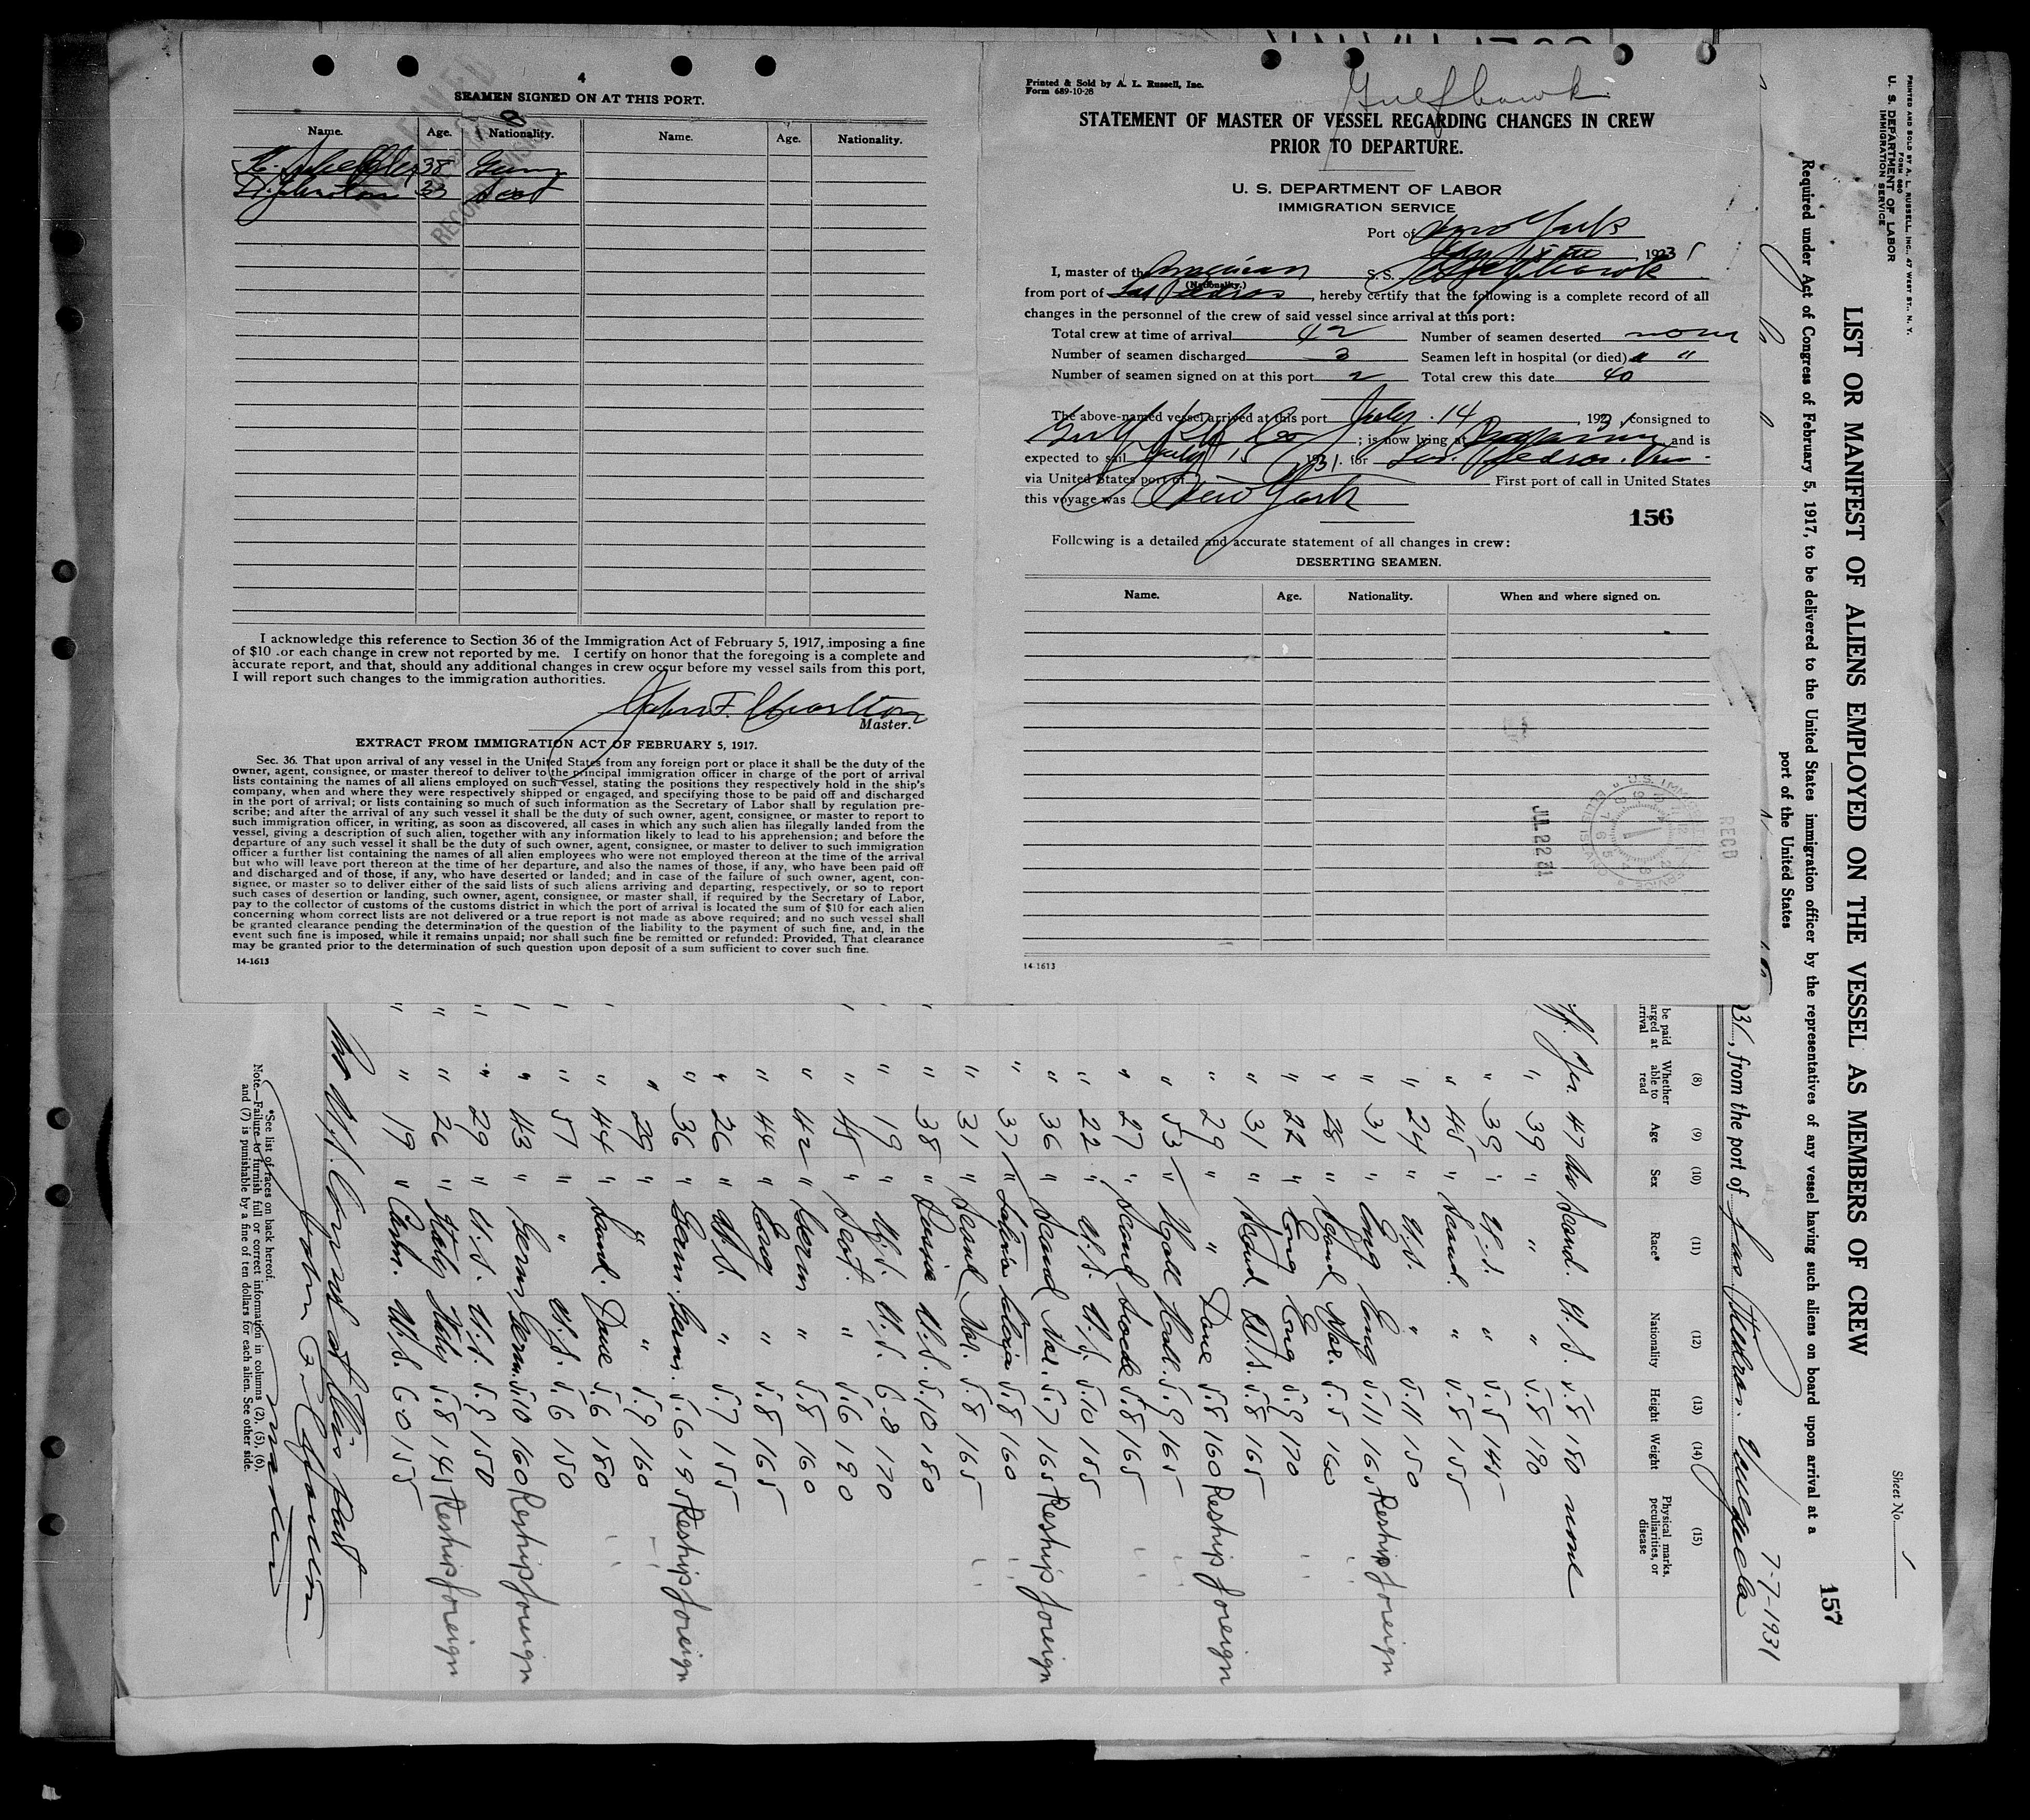 4
SEAMEN SIGNED ON AT THIS PORT.
Name. Age. Nationality. Name. Age. Nationality.
38 Germ
33 Scot
I acknowledge this reference to Section 36 of the Immigration Act of February 5, 1917, imposing a fine
of $10 .or each change in crew not reported by me. I certify on honor that the foregoing is a complete and
accurate report, and that, should any additional changes in crew occur before my vessel sails from this port,
I will report such changes to the immigration authorities.
John F. Charlton
Master.
EXTRACT FROM IMMIGRATION ACT OF FEBRUARY 5, 1917.
Sec. 36. That upon arrival of any vessel in the United States from any foreign port or place it shall be the duty of the
owner, agent, consignee, or master thereof to deliver to the principal immigration officer in charge of the port of arrival
lists containing the names of all aliens employed on such vessel, stating the positions they respectively hold in the ship's
company, when and where they were respectively shipped or engaged, and specifying those to be paid off and discharged
in the port of arrival; or lists containing so much of such information as the Secretary of Labor shall by regulation pre-
scribe; and after the arrival of any such vessel it shall be the duty of such owner, agent, consignee, or master to report to
such immigration officer, in writing, as soon as discovered, all cases in which any such alien has illegally landed from the
vessel, giving a description of such alien, together with any information likely to lead to his apprehension; and before the
departure of any such vessel it shall be the duty of such owner, agent, consignee, or master to deliver to such immigration
officer a further list containing the names of all alien employees who were not employed thereon at the time of the arrival
but who will leave port thereon at the time of her departure, and also the names of those, if any, who have been paid off
and discharged and of those, if any, who have deserted or landed; and in case of the failure of such owner, agent, con-
signee, or master so to deliver either of the said lists of such aliens arriving and departing, respectively, or so to report
such cases of desertion or landing, such owner, agent, consignee, or master shall, if required by the Secretary of Labor,
pay to the collector of customs of the customs district in which the port of arrival is located the sum of $10 for each alien
concerning whom correct lists are not delivered or a true report is not made as above required; and no such vessel shall
be granted clearance pending the determination of the question of the liability to the payment of such fine, and, in the
event such fine is imposed, while it remains unpaid; nor shall such fine be remitted or refunded: Provided, That clearance
may be granted prior to the determination of such question upon deposit of a sum sufficient to cover such fine.
14-1613
Printed & Sold by A. L. Russell, Inc.
Form 689-10-28
Gulfhawk
STATEMENT OF MASTER OF VESSEL REGARDING CHANGES IN CREW
PRIOR TO DEPARTURE.
U. S. DEPARTMENT OF LABOR
IMMIGRATION SERVICE
Port of New York
July 1931
I, master of the American S. S. Gulfhawk
(Nationality.)
from port of Las Piedras, hereby certify that the following is a complete record of all
changes in the personnel of the crew of said vessel since arrival at this port:
Total crew at time of arrival 42 Number of seamen deserted none
Number of seamen discharged Seamen left in hospital (or died) "
Number of seamen signed on at this port 2 Total crew this date 40
The above-named vessel arrived at this port July 14, 1931, consigned to
Gulf Rf Co; is now lying at and is
expected to sail July 15 1931. for Las Piedras. Ven.
via United States port of First port of call in United States
this voyage was New York
156
Following is a detailed and accurate statement of all changes in crew:
DESERTING SEAMEN.
Name. Age. Nationality. When and where signed on.
U.S. IMMIGRATION SERVICE ELLIS ISLAND
JUL 22 31
RECD
14-1613
PRINTED AND SOLD BY A. L. RUSSELL, INC., 47 WEST ST., N. Y.
FORM 680
U. S. DEPARTMENT OF LABOR
IMMIGRATION SERVICE
Sheet No. 1
LIST OR MANIFEST OF ALIENS EMPLOYED ON THE VESSEL AS MEMBERS OF CREW
157
Required under Act of Congress of February 5, 1917, to be delivered to the United States immigration officer by the representatives of any vessel having such aliens on board upon arrival at a
port of the United States
7-7-1931
31, from the port of Las Piedras. Venezuela
be paid
arged at
rrival
(8) Whether able to read
(9) Age
(10) Sex
(11) Race*
(12) Nationality
(13) Height
(14) Weight
(15) Physical marks, peculiarities, or disease
Yes 47 Scand. U.S. 5.8 180 none
" 39 " " " 5.8 190
" 39 " U.S. " 5.5 145
" 45 " Scand. " 5.8 155
" 24 " U.S. " 5.11 150
" 31 " Eng Eng 5.11 165 Reship foreign
" 28 " Scand Nor. 5.5 160
" 22 " Eng Eng 5.9 170
" 31 " Scand. U.S. 5.8 165
" 29 " " Dane 5.8 160 Reship foreign
" 53 " Holl Holl. 5.9 165
" 27 " Scand 5.8 165
" 22 " U.S. U.S. 5.10 185
" 36 " Scand Nor. 5.7 165 Reship foreign
" 37 " Latvia Latvia 5.8 160
" 31 " Scand Nor. 5.8 165
" 38 " Russia U.S. 5.10 180
" 19 " U.S. U.S. 6-0 170
" 45 " Scot. " 5.6 190
" 42 " Germ " 5.8 160
" 44 " Eng " 5.8 165
" 26 " U.S. " 5.7 155
" 36 " Germ. Germ. 5.6 195 Reship foreign
" 29 " " " 5.9 160
" 44 " Scand. Dane 5.6 180
" 57 " " U.S. 5.6 150
" 43 " Germ. Germ. 5.10 160 Reship foreign
" 29 " U.S. U.S. 5.9 150
" 26 " Italy Italy 5.8 145 Reship foreign
" 19 " U.S. 6-0 155
No U.S. Consul at this port
John F. Charlton
master
*See list of races on back hereof.
Note.—Failure to furnish full or correct information in columns (2), (5), (6),
and (7) is punishable by a fine of ten dollars for each alien. See other side.